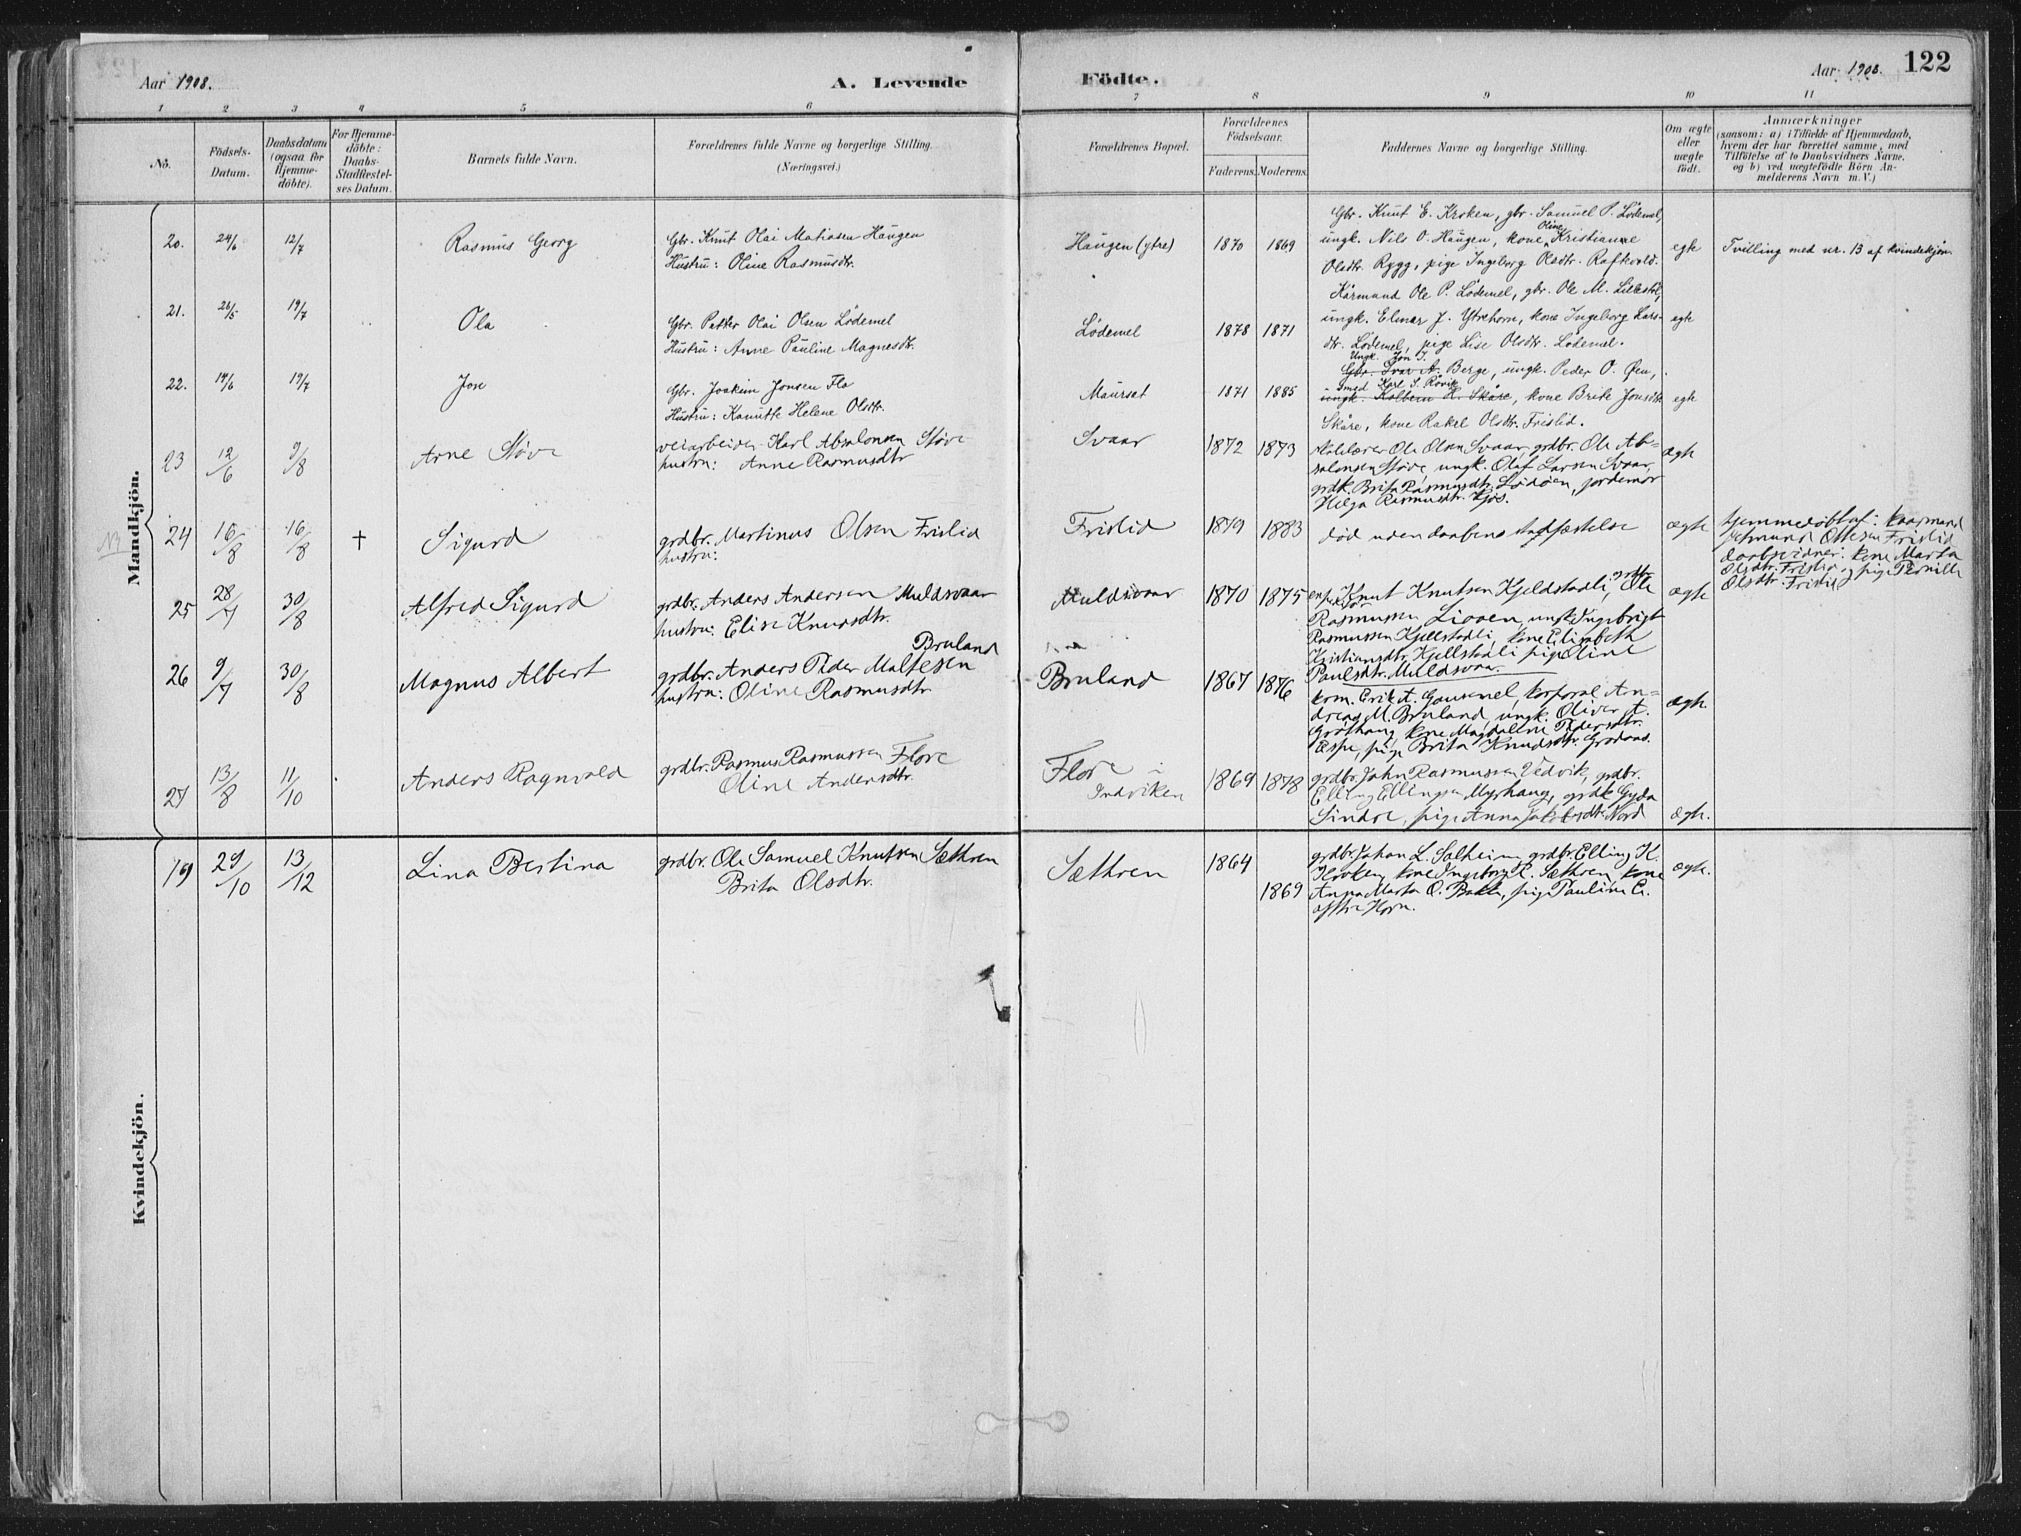 Aar 1908.
A. Levende
Födte.
Aar 1908.
122
1 2 3 4 5 6 7 8 9 10 11
No.
Födsels-
Datum.
Daabsdatum
(ogsaa for
Hjemme-
döbte).
For Hjemme-
döbte:
Daabs-
Stadfæstel-
ses Datum.
Barnets fulde Navn.
Forældrenes fulde Navne og borgerlige Stilling.
(Næringsvei.)
Forældrenes Bopæl.
Forældrenes
Födselsaar.
Faderens. Moderens.
Faddernes Navne og borgerlige Stilling.
Om ægte
eller
uægte
födt.
Anmærkninger
(saasom: a) i Tilfælde af Hjemmedaab,
hvem der har forrettet samme, med
Tilföielse af to Daabsvidners Navne,
og b) ved uægtefödte Börn An-
melderens Navn m. V.)
Mandkjön.
20. 24/6 12/7 Rasmus Georg
Gbr. Knut Olai Matiasen Haugen
Hustru: Oline Rasmusdtr.
Haugen (ytre) 1870 1869
Gbr. Knut E. Kroken, gbr. Samuel P. Lødemel,
Oline
ungk. Nils O. Haugen, kone Kristianne
Olsdtr. Rygg, pige Ingeborg Olsdtr. Raftevold.
egte
Tvilling med nr. 13 af kvindekjøn.
21. 26/5 19/7 Ola
Gbr. Petter Olai Olsen Lødemel
Hustru: Anne Pauline Magnesdtr.
Lødemel 1878 1871
Kårmand Ole P. Lødemel, gbr. Ole M. Lillestøl,
ungk. Elmar J. Ytrehorn, kone Ingeborg Lars-
dtr. Lødemel, pige Lise Olsdtr. Lødemel.
egte
22. 14/6 19/7 Jon
Gbr. Joakim Jonsen Flo
Hustru: Kanutte Helene Olsdtr.
Maurset 1871 1885
Ungk. Jon J.
Gbr. Ivar A. Berge, ungk. Peder O. Øen,
Smed Karl S. Røvik
ungk. Kolbein H. Skåre, kone Brite Jonsdtr.
Skåre, kone Rakel Olsdtr. Frislid.
egte
23 12/6 9/8 Arne Støve
veiarbeider Karl Absalonsen Støve
hustru: Anne Rasmusdtr
Svaar 1872 1873
skolelærer Ole Olsen Svaar, grdbr. Ole Ab-
salonsen Støve, ungk. Olaf Larsen Svaar,
grdk. Brita Rasmusdtr. Lødøen, jordemor
Helga Rasmusdtr. Kjøs.
ægte
24 16/8 16/8 † Sigurd
grdbr. Martinus Olsen Frislid
hustru:
Frislid 1879 1883
død uden daabens stadfæstelse
ægte
hjemmedøbt af: kaarmand
Ottesen Frislid
daabsvidner: kone Marta
Olsdtr. Frislid og pige Pernille
Olsdtr. Frislid
25 28/7 30/8 Alfred Sigurd
grdbr. Anders Andersen Muldsvaar
hustru: Elise Knutsdtr.
Muldsvaar 1870 1875
Knut Knutsen Kjeldstadli, Ole
Rasmussen Lioven, ungk. Ingebrigt
Rasmussen Kjellstadli, kone Elisabeth
Kristiansdtr. Kjellstadli pige Oline
Paulsdtr. Muldsvaar.
ægte
26 9/7 30/8 Magnus Albert
Bruland
grdbr. Anders Peder Maltesen
hustru: Oline Rasmusdtr
Bruland 1867 1876
korn. Erik A. Gausemel, korporal An-
dreas M. Bruland, ungk. Oliver A.
Grøthaug, kone Magdalene Pedersdtr.
Espe, pige Brita Knudsdtr. Grodaas.
ægte.
27 13/8 11/10 Anders Ragnvald
grdbr. Rasmus Rasmussen Flore
Oline Andersdtr.
Flore i
Indviken
1869 1878
grdbr. John Rasmussen Vedvik, grdbr.
Elling Ellingsen Myrhaug, grdk Gyda
Sindre, pige Anna Jakobsdtr. Nord
ægte.
Kvindekjön.
19 29/10 13/12 Lina Bertina
grdbr. Ole Samuel Knutsen Sæthren
Brita Olsdtr.
Sæthren 1864
1869
grdbr. Johan L. Solheim grdbr. Elling K.
Kroken, kone Ingeborg R. Sæthren, kone
Anna Marta O. Bakke, pige Pauline E.
Horn.
ægte.